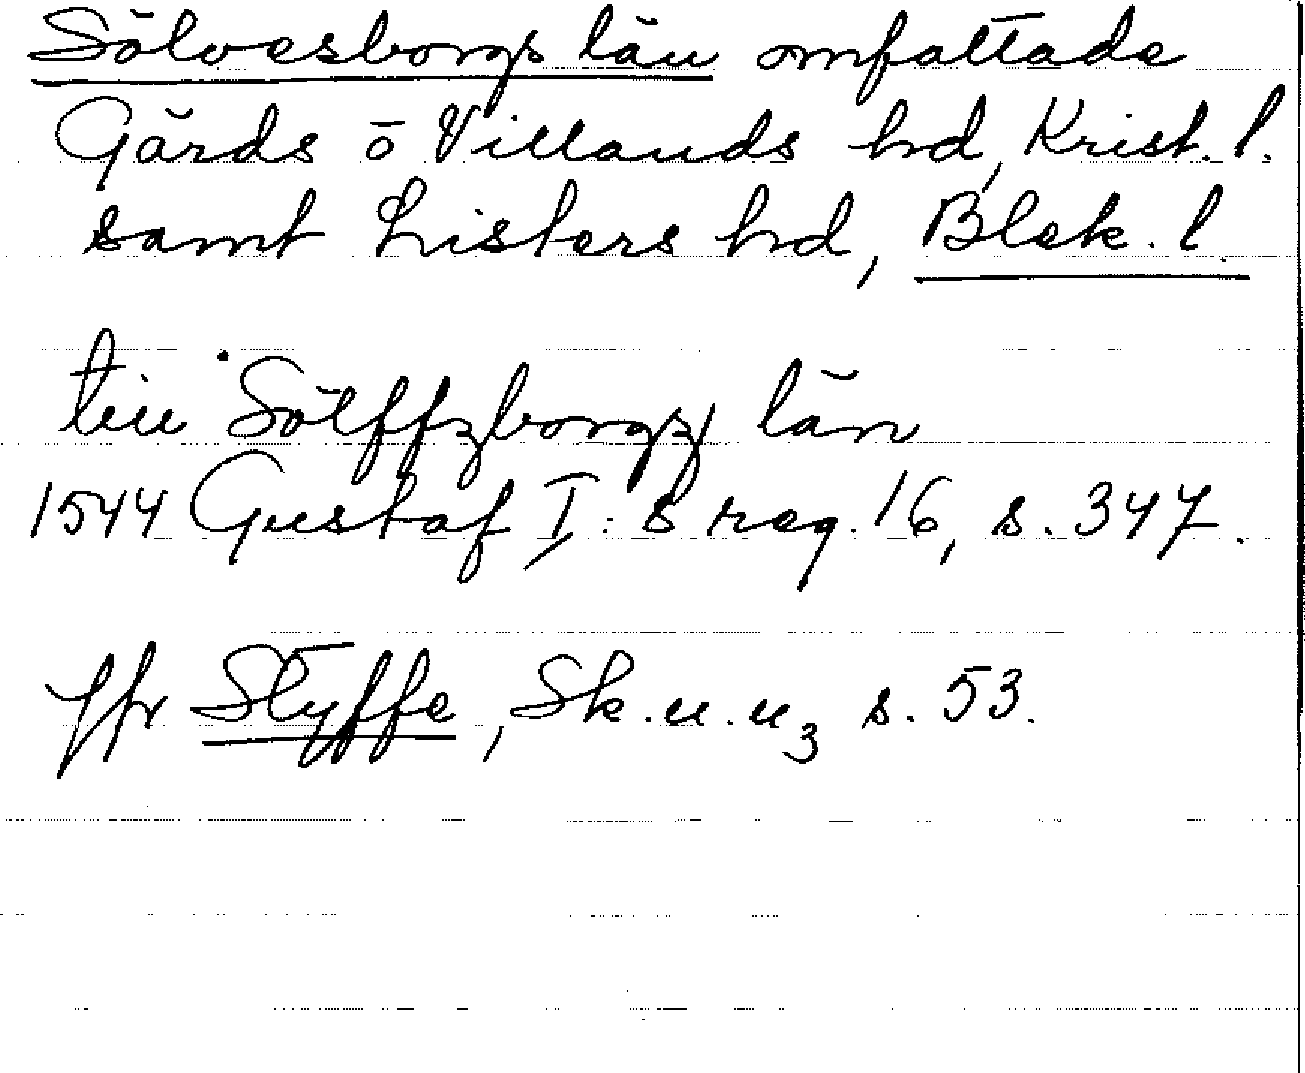 Sölvesborgs län omfattade
Gärds o Villands hd, Krist. l.
samt Listers hd, Blek. l.
till Sölffzborgz län
1544 Gustaf I:s reg. 16, s. 347.
Jfr Styffe, Sk. u. u3 s. 53.